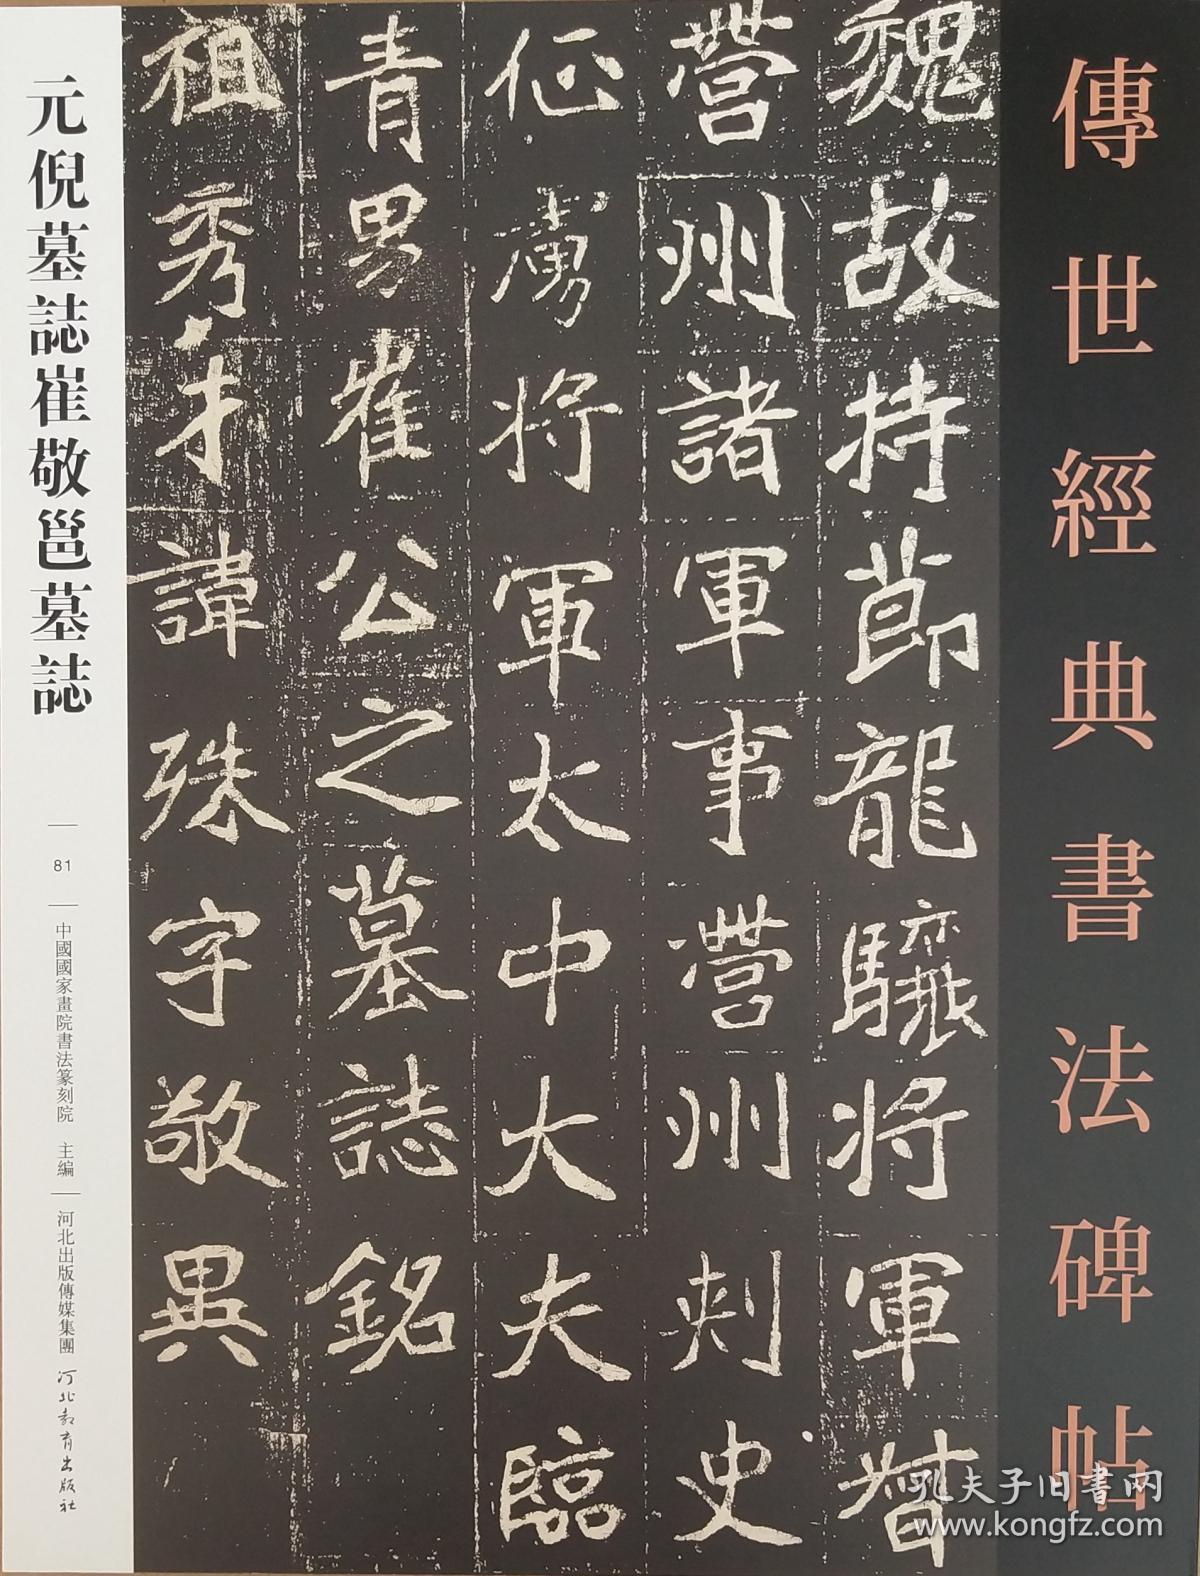 傳世經典書法碑帖
魏故持節龍驤將軍督
營州諸軍事營州刺史
征虜將軍太中大夫臨
青男崔公之墓誌銘
祖秀才諱殊字敬異
元倪墓誌崔敬邕墓誌
81
中國國家畫院書法篆刻院 主編
河北出版傳媒集團
河北教育出版社
孔夫子旧書网
www.kongfz.com